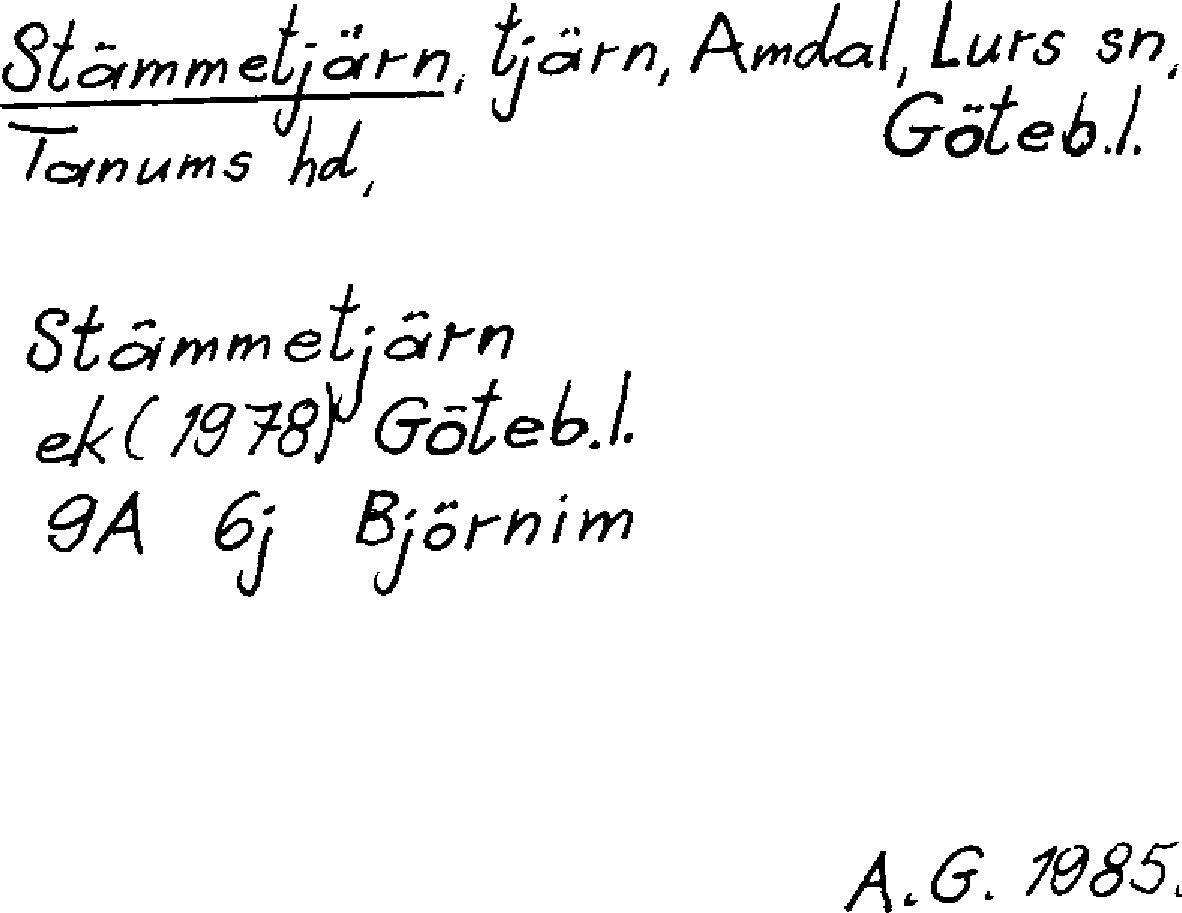 Stämmetjärn, tjärn, Amdal, Lurs sn,
Tanums hd, Göteb.l.
Stämmetjärn
ek (1978) Göteb.l.
9A 6j Björnim
A.G. 1985.